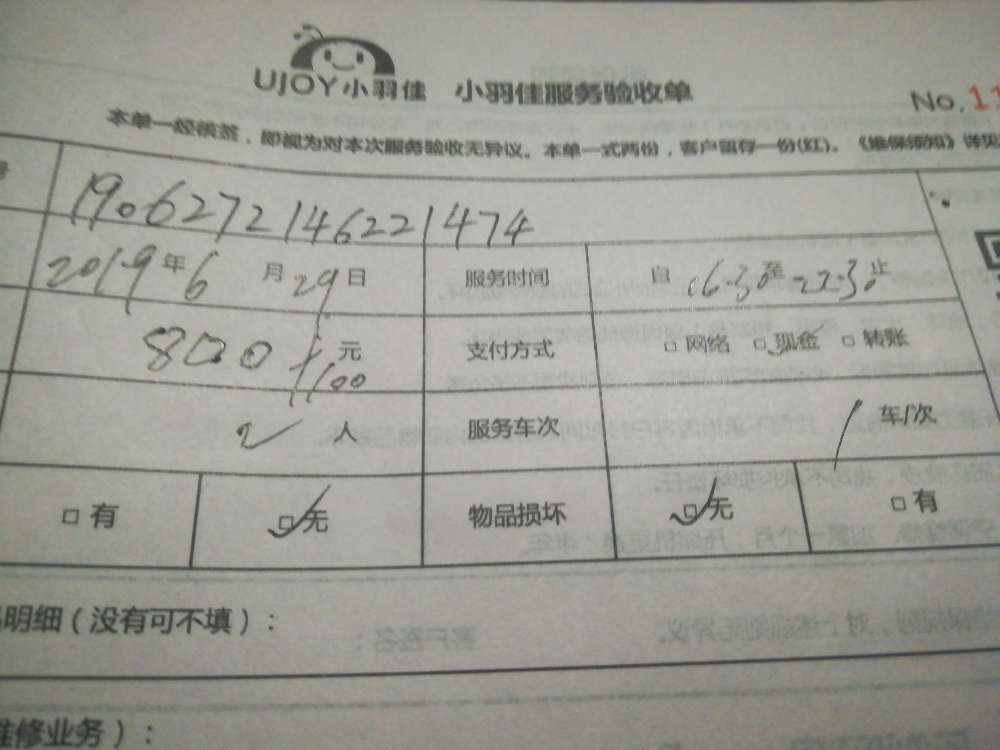 UJOY小羽佳 小羽佳服务验收单
No.11
本单一经签签，即视为对本次服务验收无异议。本单一式两份，客户留存一份(红)。《维保须知》详见
号 1906272146221474
2019年6月29日 服务时间 自16:30至22:30止
800+100元 支付方式 □网络 □现金 □转账
2人 服务车次 1车/次
□有 □无 物品损坏 □无 □有
明细（没有可不填）：
维修业务）：